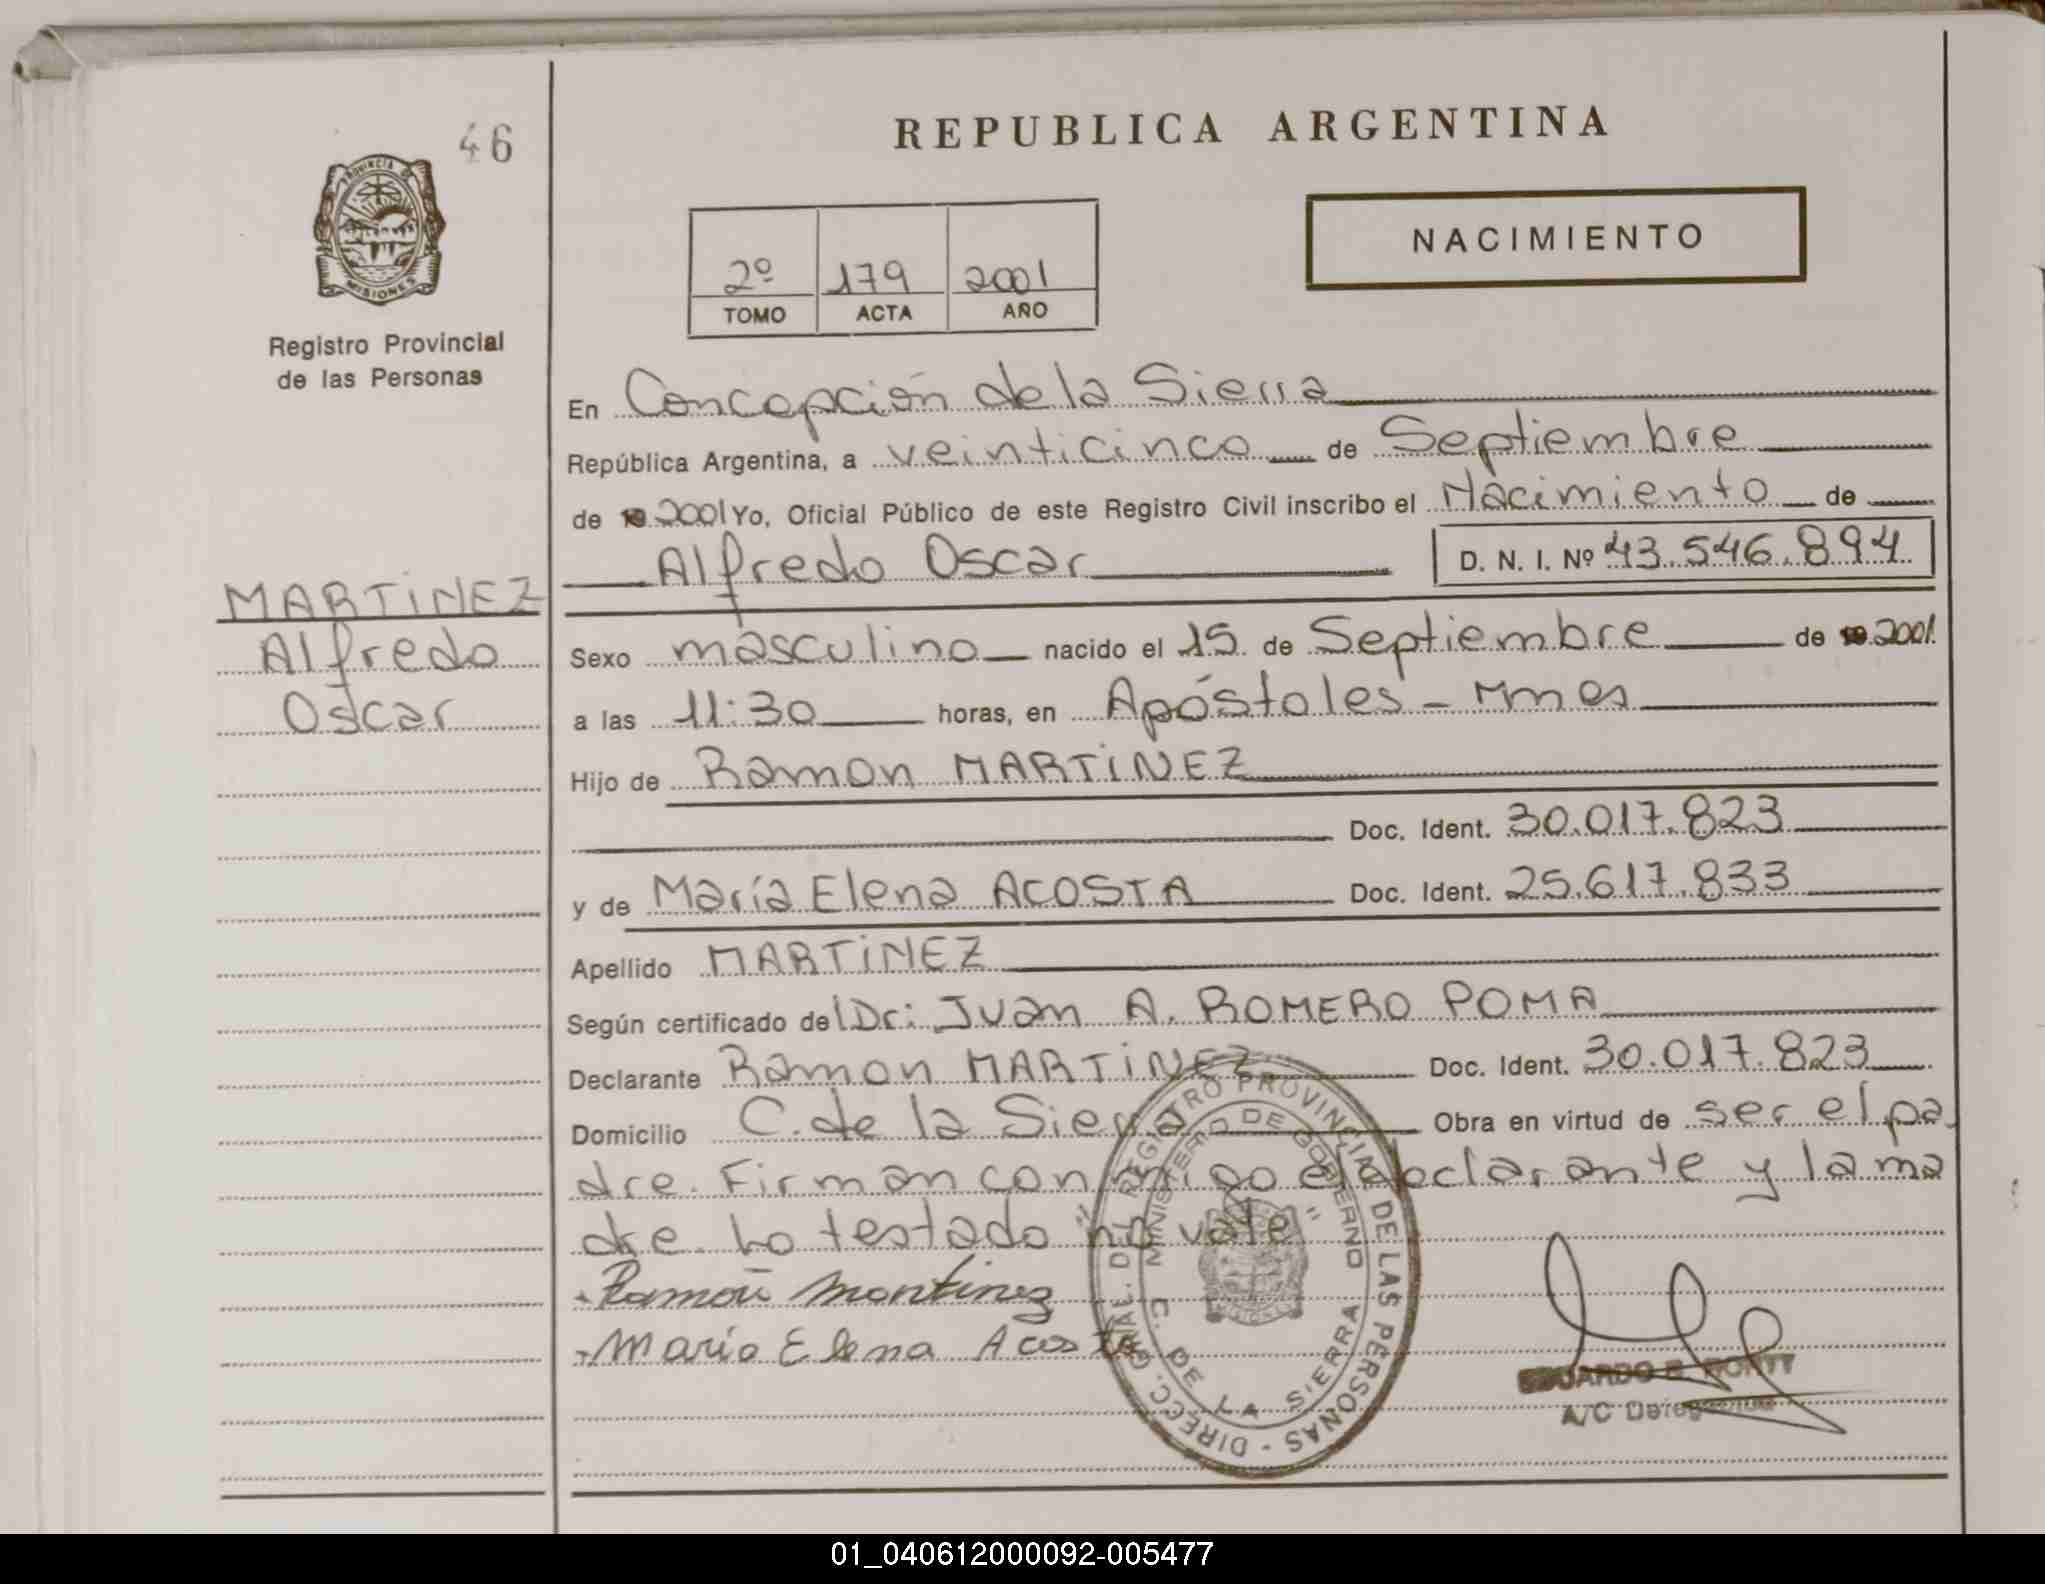 46
PROVINCIA DE
MISIONES
Registro Provincial
de las Personas
MARTINEZ
Alfredo
Oscar
REPUBLICA ARGENTINA
2º 179 2001
TOMO ACTA AÑO
NACIMIENTO
En Concepción de la Sierra
República Argentina, a veinticinco de Septiembre
de 2001 Yo, Oficial Público de este Registro Civil inscribo el Nacimiento de
Alfredo Oscar D. N. I. Nº 43.546.894
Sexo masculino nacido el 15 de Septiembre de 2001.
a las 11:30 horas, en Apóstoles - Mnes
Hijo de Ramon MARTINEZ
Doc. Ident. 30.017.823
y de María Elena ACOSTA Doc. Ident. 25.617.833
Apellido MARTINEZ
Según certificado del Dr: Juan A. ROMERO POMA
Declarante Ramon MARTINEZ Doc. Ident. 30.017.823
Domicilio C. de la Sierra Obra en virtud de ser el pa
dre. Firman conmigo el declarante y la ma
dre. Lo testado "no vale"
Ramon Martinez
Maria Elena Acosta
DIRECC. GRAL. DEL REGISTRO PROVINCIAL DE LAS PERSONAS -
MINISTERIO DE GOBIERNO
C. DE LA SIERRA
EDUARDO
A/C
01_040612000092-005477